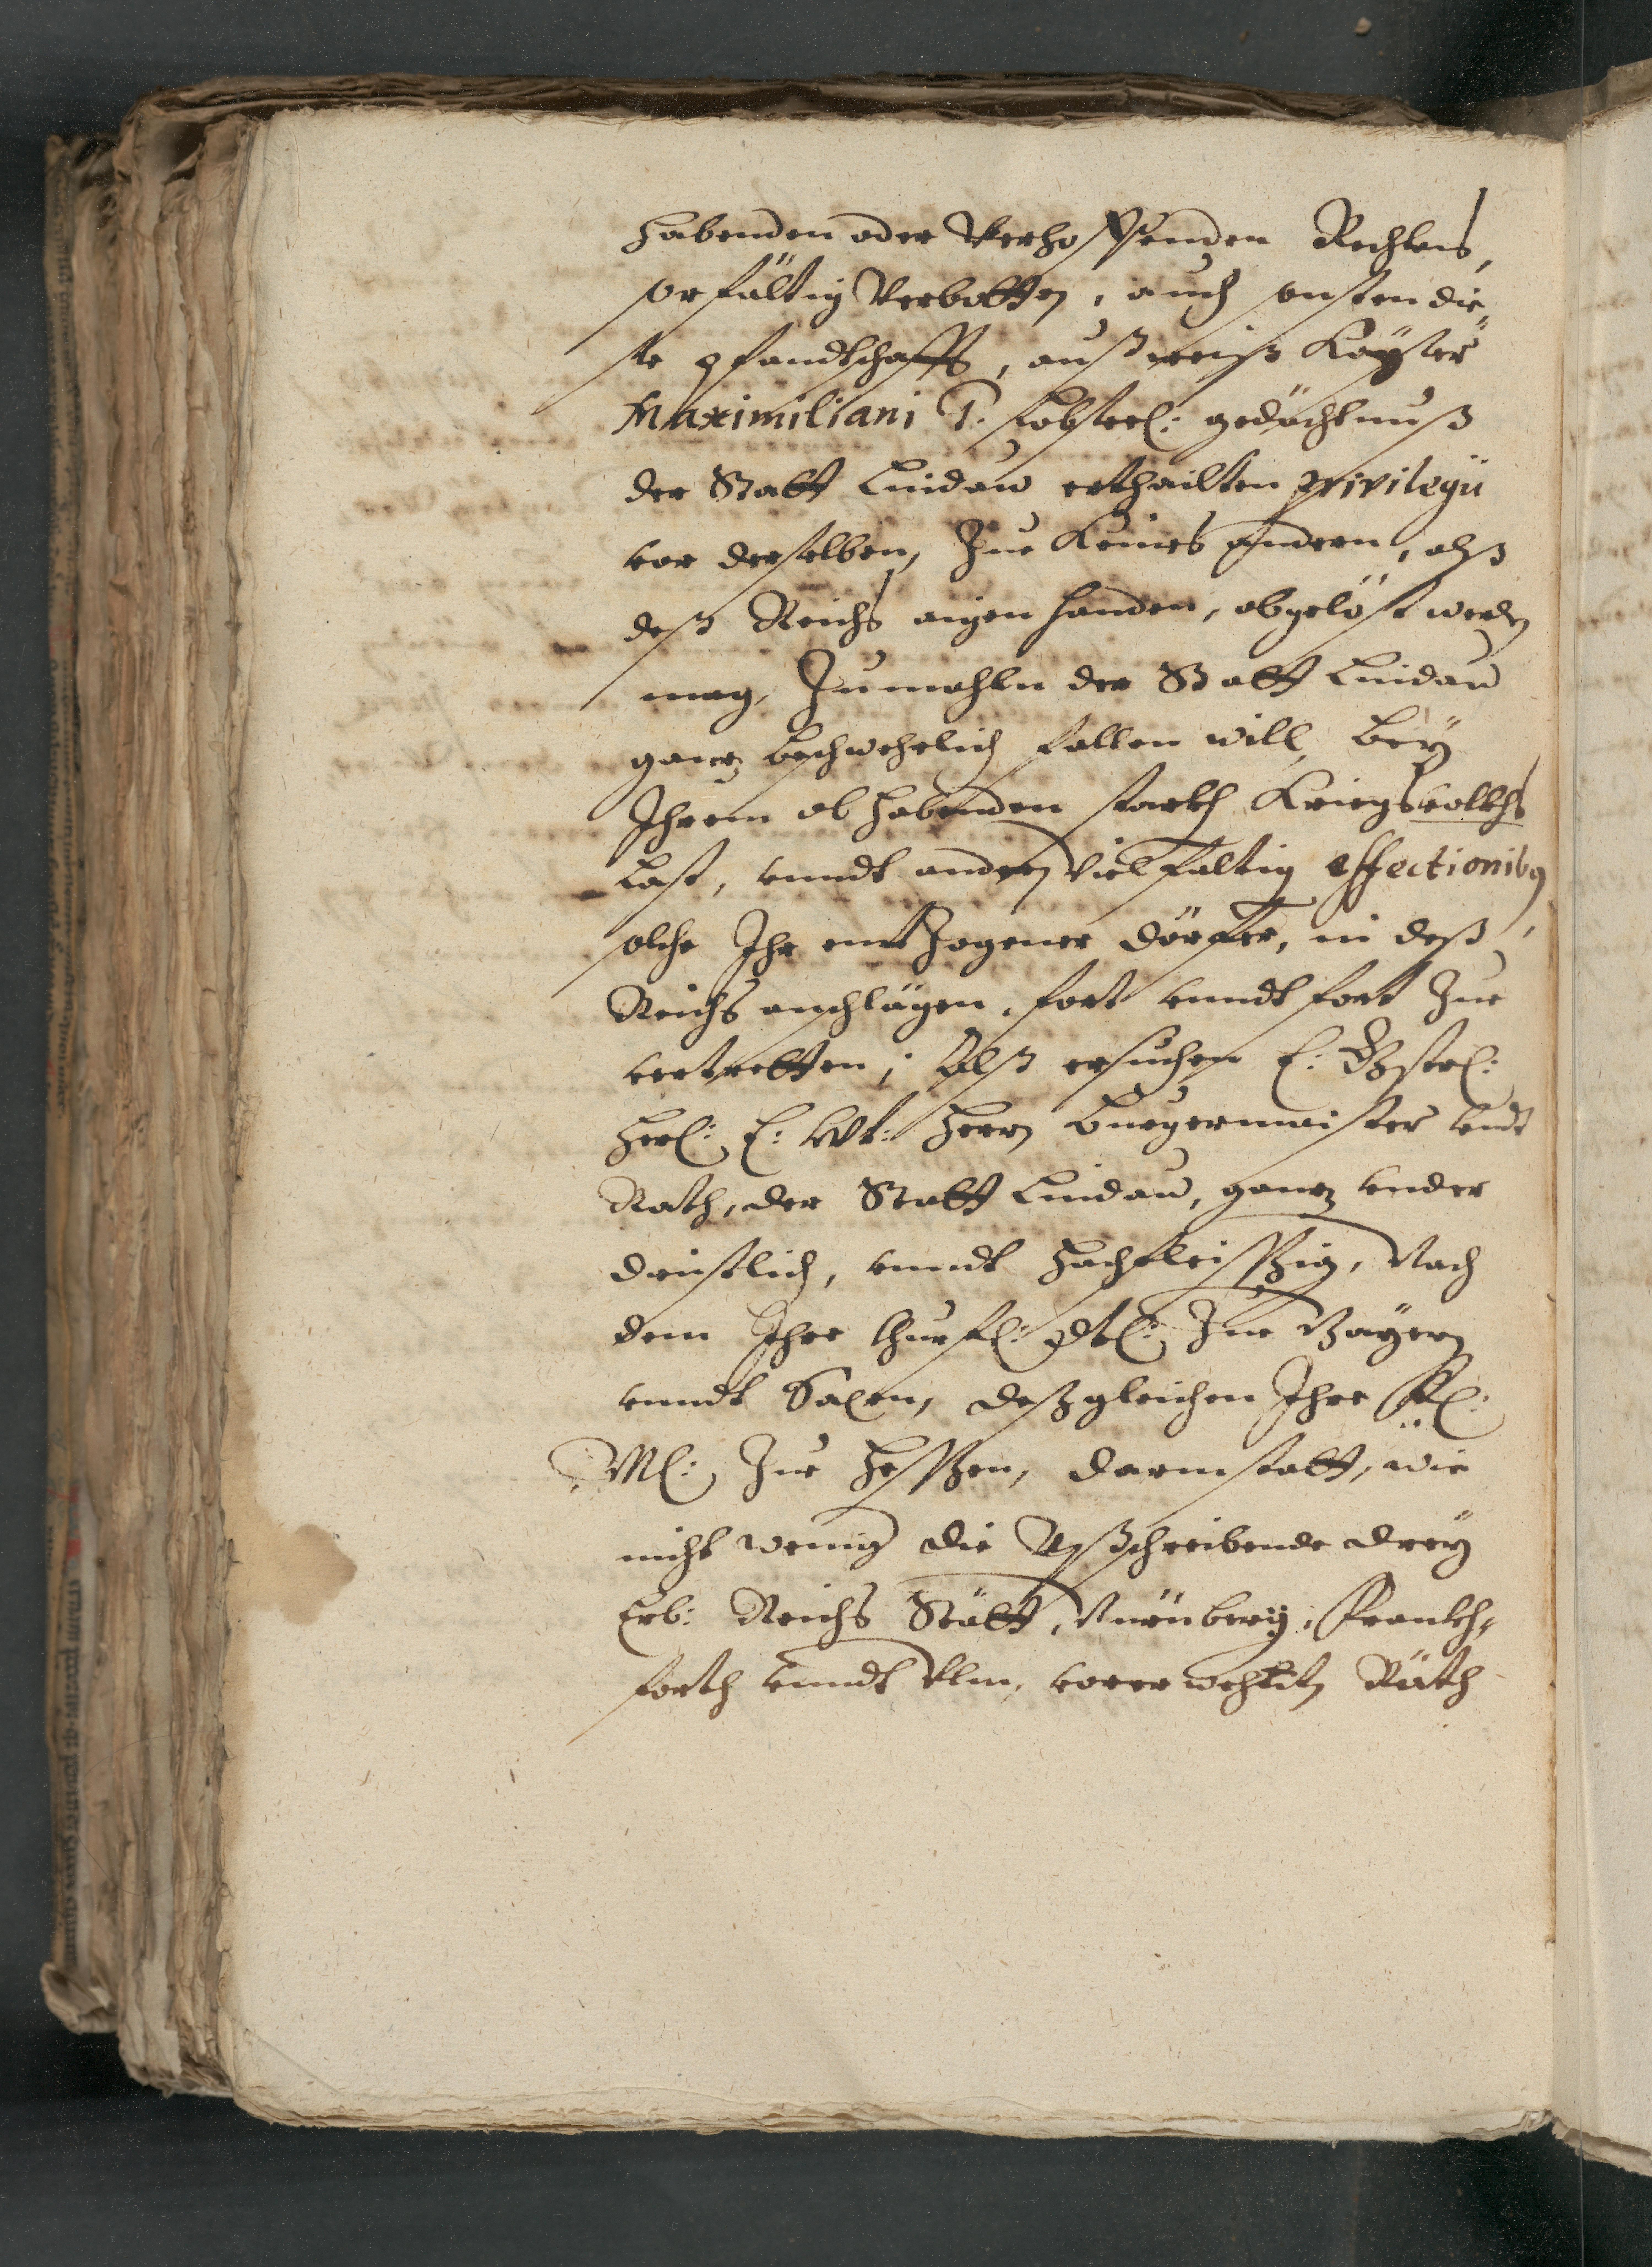 habenden oder Verhoffenden Rechtens,
sorfältig Verbotten, auch sonsten die„
se pfandtschafft, außweiß Kaÿsers
Maximiliani 1. lobseel: gedächtnuß
der Statt Lindaw erthailten privilegii
von derselben, Zue Keines andern, alß
deß Reichs aigen handen, abgelöst werden
mag, Zumahln der Statt Lindaw
gantz beschwehrlich fallen will, beÿ
Ihrem obhabenden starkh Kriegsvolkhs
Last, vnndt andern Vielfaltig affectionibus
solche Ihr entzogener dörffer, in deß
Reichs anschlägen, fort vnndt fort Zue
vertretten; Alß ersuchen E:
Herl: E: Wt: Herrn Burgermaister vndt
Rath, der Statt Lindaw, gantz vnder
dienstlich, vnndt hochfleisßig, Nach
dem Ihre Churfl: dtl: Zue Baÿern
vnndt Saxen, deßgleichen Ihre Fl:
Zue Hesßen, Darmstatt, wie
nicht wenig die Außschreibende dreÿ
Erb: Reichs Stätt, Nürnberg, Frankh„
forth vnndt Vlm, vorerwehlte Räth